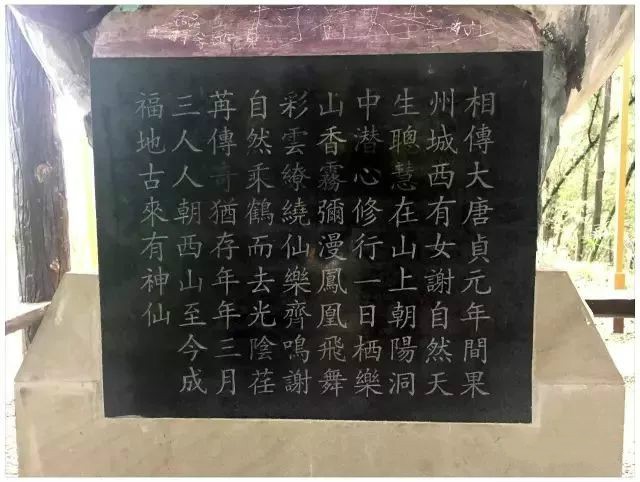 相傳大唐貞元年間果
州城西有女謝自然天
生聰慧在山上朝陽洞
中潛心修行一日栖樂
山香霧彌漫鳳凰飛舞
彩雲繚繞仙樂齊鳴謝
自然乘鶴而去光陰荏
苒傳奇猶存年年三月
三人人朝西山至今成
福地古來有神仙